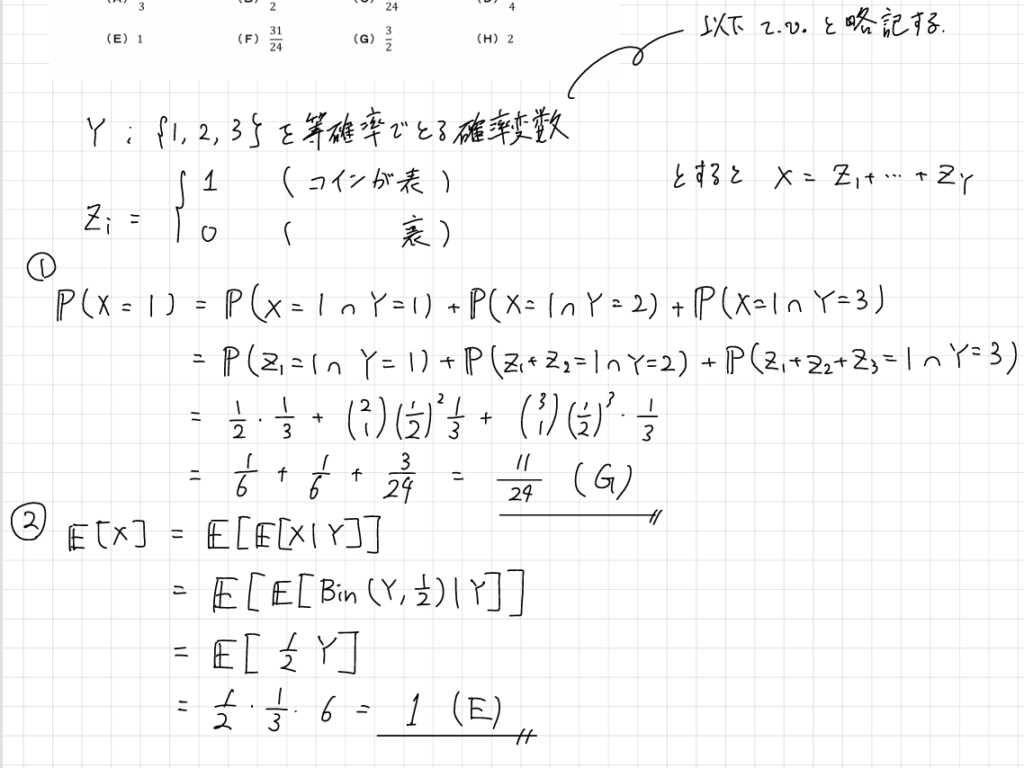 3 2 24 4
(E) 1 (F) 31/24 (G) 3/2 (H) 2
以下 r.v. と略記する.
Y ; {1, 2, 3} を等確率でとる確率変数
Zi = { 1 (コインが表)
0 ( 裏)
とすると X = Z₁ + ⋯ + Z_Y
①
ℙ(X = 1) = ℙ(X = 1 ∩ Y = 1) + ℙ(X = 1 ∩ Y = 2) + ℙ(X = 1 ∩ Y = 3)
= ℙ(Z₁ = 1 ∩ Y = 1) + ℙ(Z₁ + Z₂ = 1 ∩ Y = 2) + ℙ(Z₁ + Z₂ + Z₃ = 1 ∩ Y = 3)
= 1/2 · 1/3 + (2 1)(1/2)² 1/3 + (3 1)(1/2)³ · 1/3
= 1/6 + 1/6 + 3/24 = 11/24 (G)
② 𝔼[X] = 𝔼[𝔼[X|Y]]
= 𝔼[𝔼[Bin(Y, 1/2)|Y]]
= 𝔼[1/2 Y]
= 1/2 · 1/3 · 6 = 1 (E)